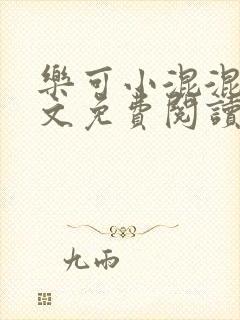 樂可小混混
文免費閱讀
九雨